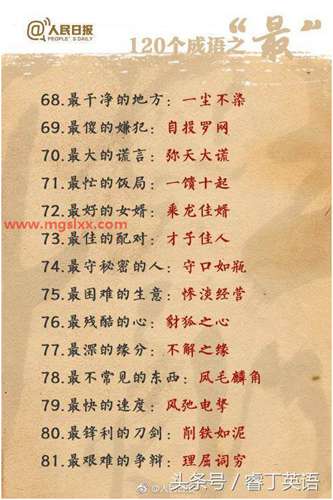 @人民日报
PEOPLE'S DAILY
120个成语之“最”
68.最干净的地方：一尘不染
69.最傻的嫌犯：自投罗网
70.最大的谎言：弥天大谎
71.最忙的饭局：一馈十起
72.最好的女婿：乘龙佳婿
www.mgslxx.com
73.最佳的配对：才子佳人
74.最守秘密的人：守口如瓶
75.最困难的生意：惨淡经营
76.最残酷的心：豺狐之心
77.最深的缘分：不解之缘
78.最不常见的东西：凤毛麟角
79.最快的速度：风驰电掣
80.最锋利的刀剑：削铁如泥
81.最艰难的争辩：理屈词穷
头条号／睿丁英语